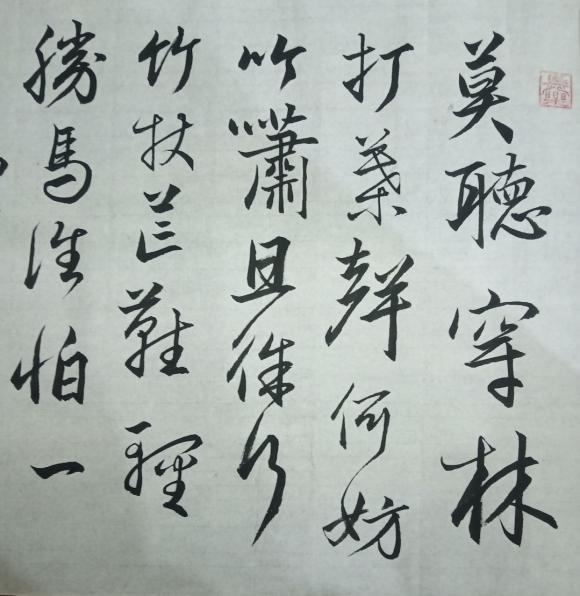 莫聽穿林
打葉聲何妨
吟嘯且徐行
竹杖芒鞋輕
勝馬誰怕一